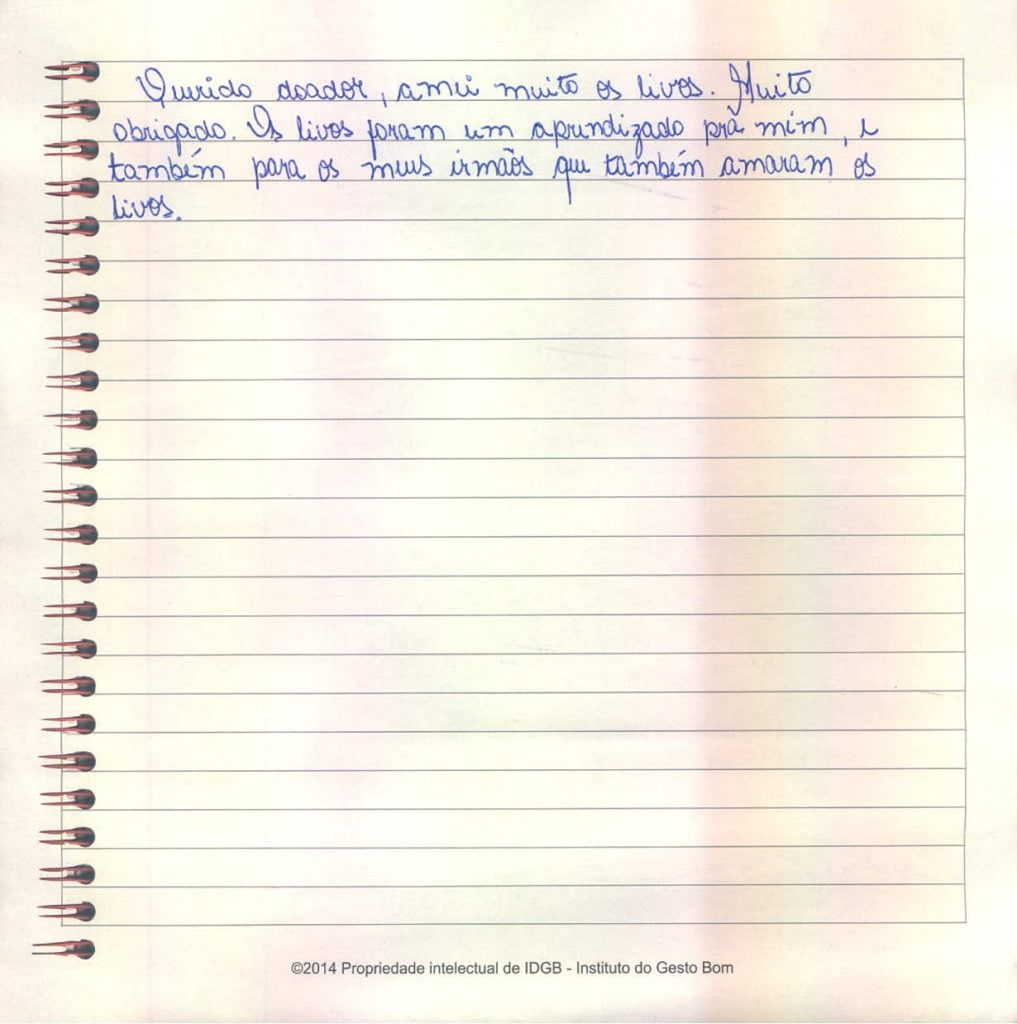 Querido doador, amei muito os livros. Muito
obrigado. Os livos foram um aprendizado prã mim, e
também para os meus irmãos que também amaram os
livos.
©2014 Propriedade intelectual de IDGB - Instituto do Gesto Bom